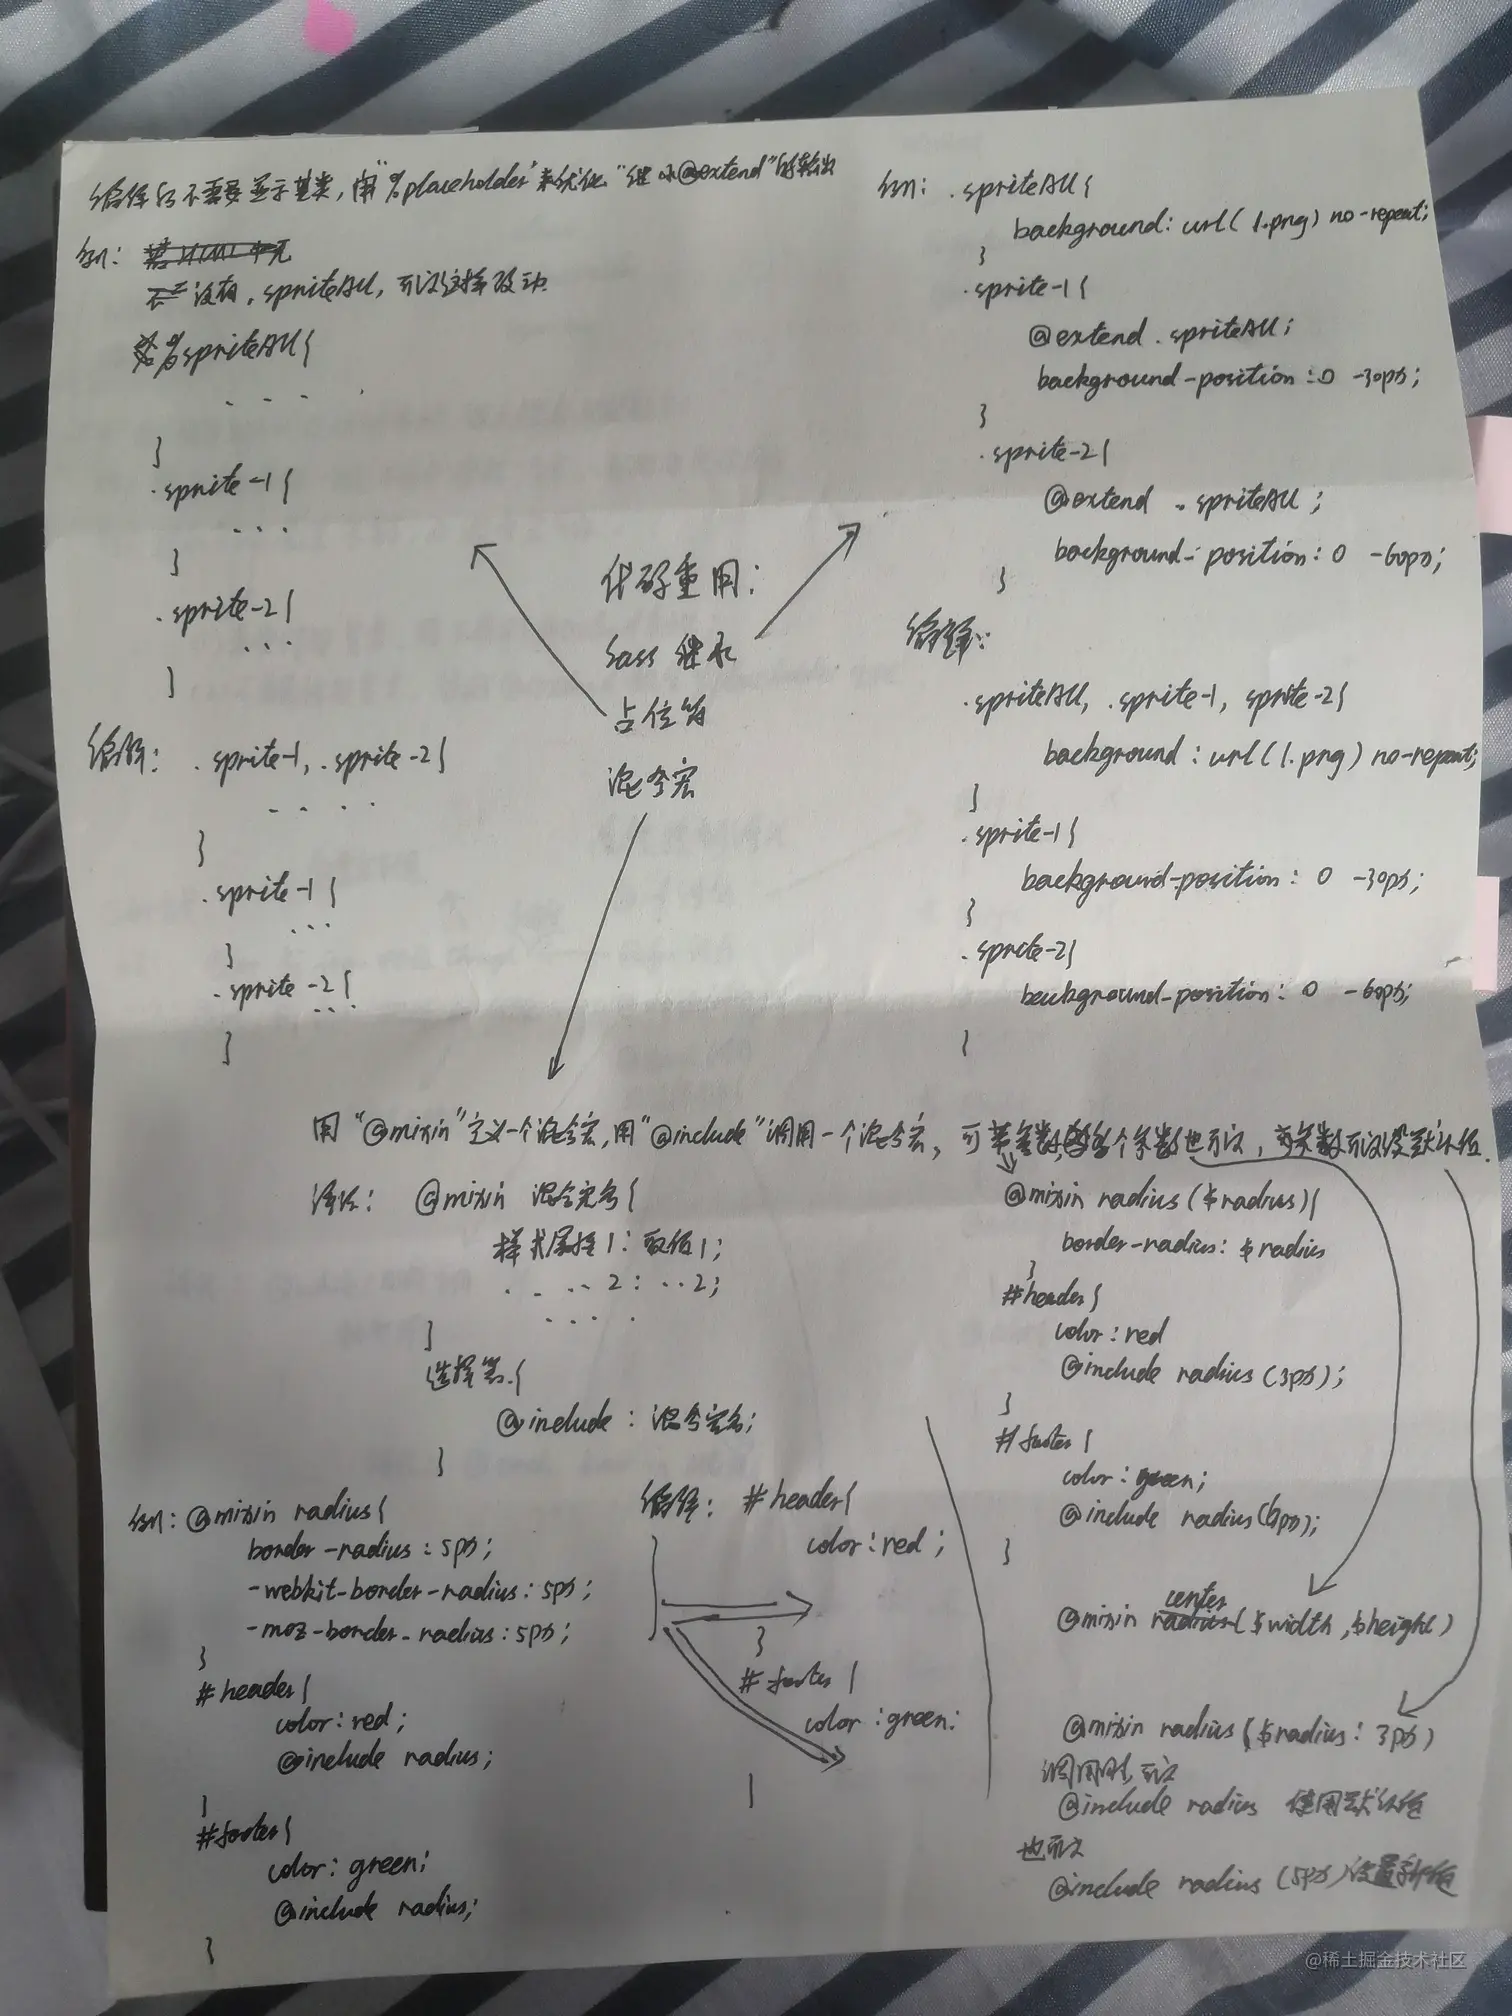 编译后不需要显示基类，用"%placeholder"来优化"继承@extend"的输出
例：
没有．spriteAll，可以这样改动
%spriteAll{
. . . .
}
.sprite-1{
...
}
.sprite-2{
...
}
编译：
.sprite-1, .sprite-2{
. . . .
}
.sprite-1{
...
}
.sprite-2{
...
}
代码重用：
Sass 继承
占位符
混合宏
例：.spriteAll{
background: url(1.png) no-repeat;
}
.sprite-1{
@extend .spriteAll;
background-position: 0 -30px;
}
.sprite-2{
@extend .spriteAll;
background-position: 0 -60px;
}
编译：
.spriteAll, .sprite-1, sprite-2{
background: url(1.png) no-repeat;
}
.sprite-1{
background-position: 0 -30px;
}
.sprite-2{
background-position: 0 -60px;
}
用"@mixin"定义一个混合宏，用"@include"调用一个混合宏，可带参数，多个参数也可以，有参数可以设默认值.
语法：@mixin 混合宏名{
样式属性1：取值1;
. . .. 2：..2;
. . . .
}
选择器{
@include：混合宏名;
}
例：@mixin radius{
border-radius: 5px;
-webkit-border-radius: 5px;
-moz-border-radius: 5px;
}
#header{
color: red;
@include radius;
}
#footer{
color: green;
@include radius;
}
编译：#header{
color: red;
}
#footer{
color: green;
}
@mixin radius($radius){
border-radius: $radius
}
#header{
color: red
@include radius(3px);
}
#footer{
color: green;
@include radius(6px);
}
@mixin center($width,$height)
@mixin radius($radius: 3px)
调用时，可以
@include radius 使用默认值
也可以
@include radius (5px) 设置新值
@稀土掘金技术社区